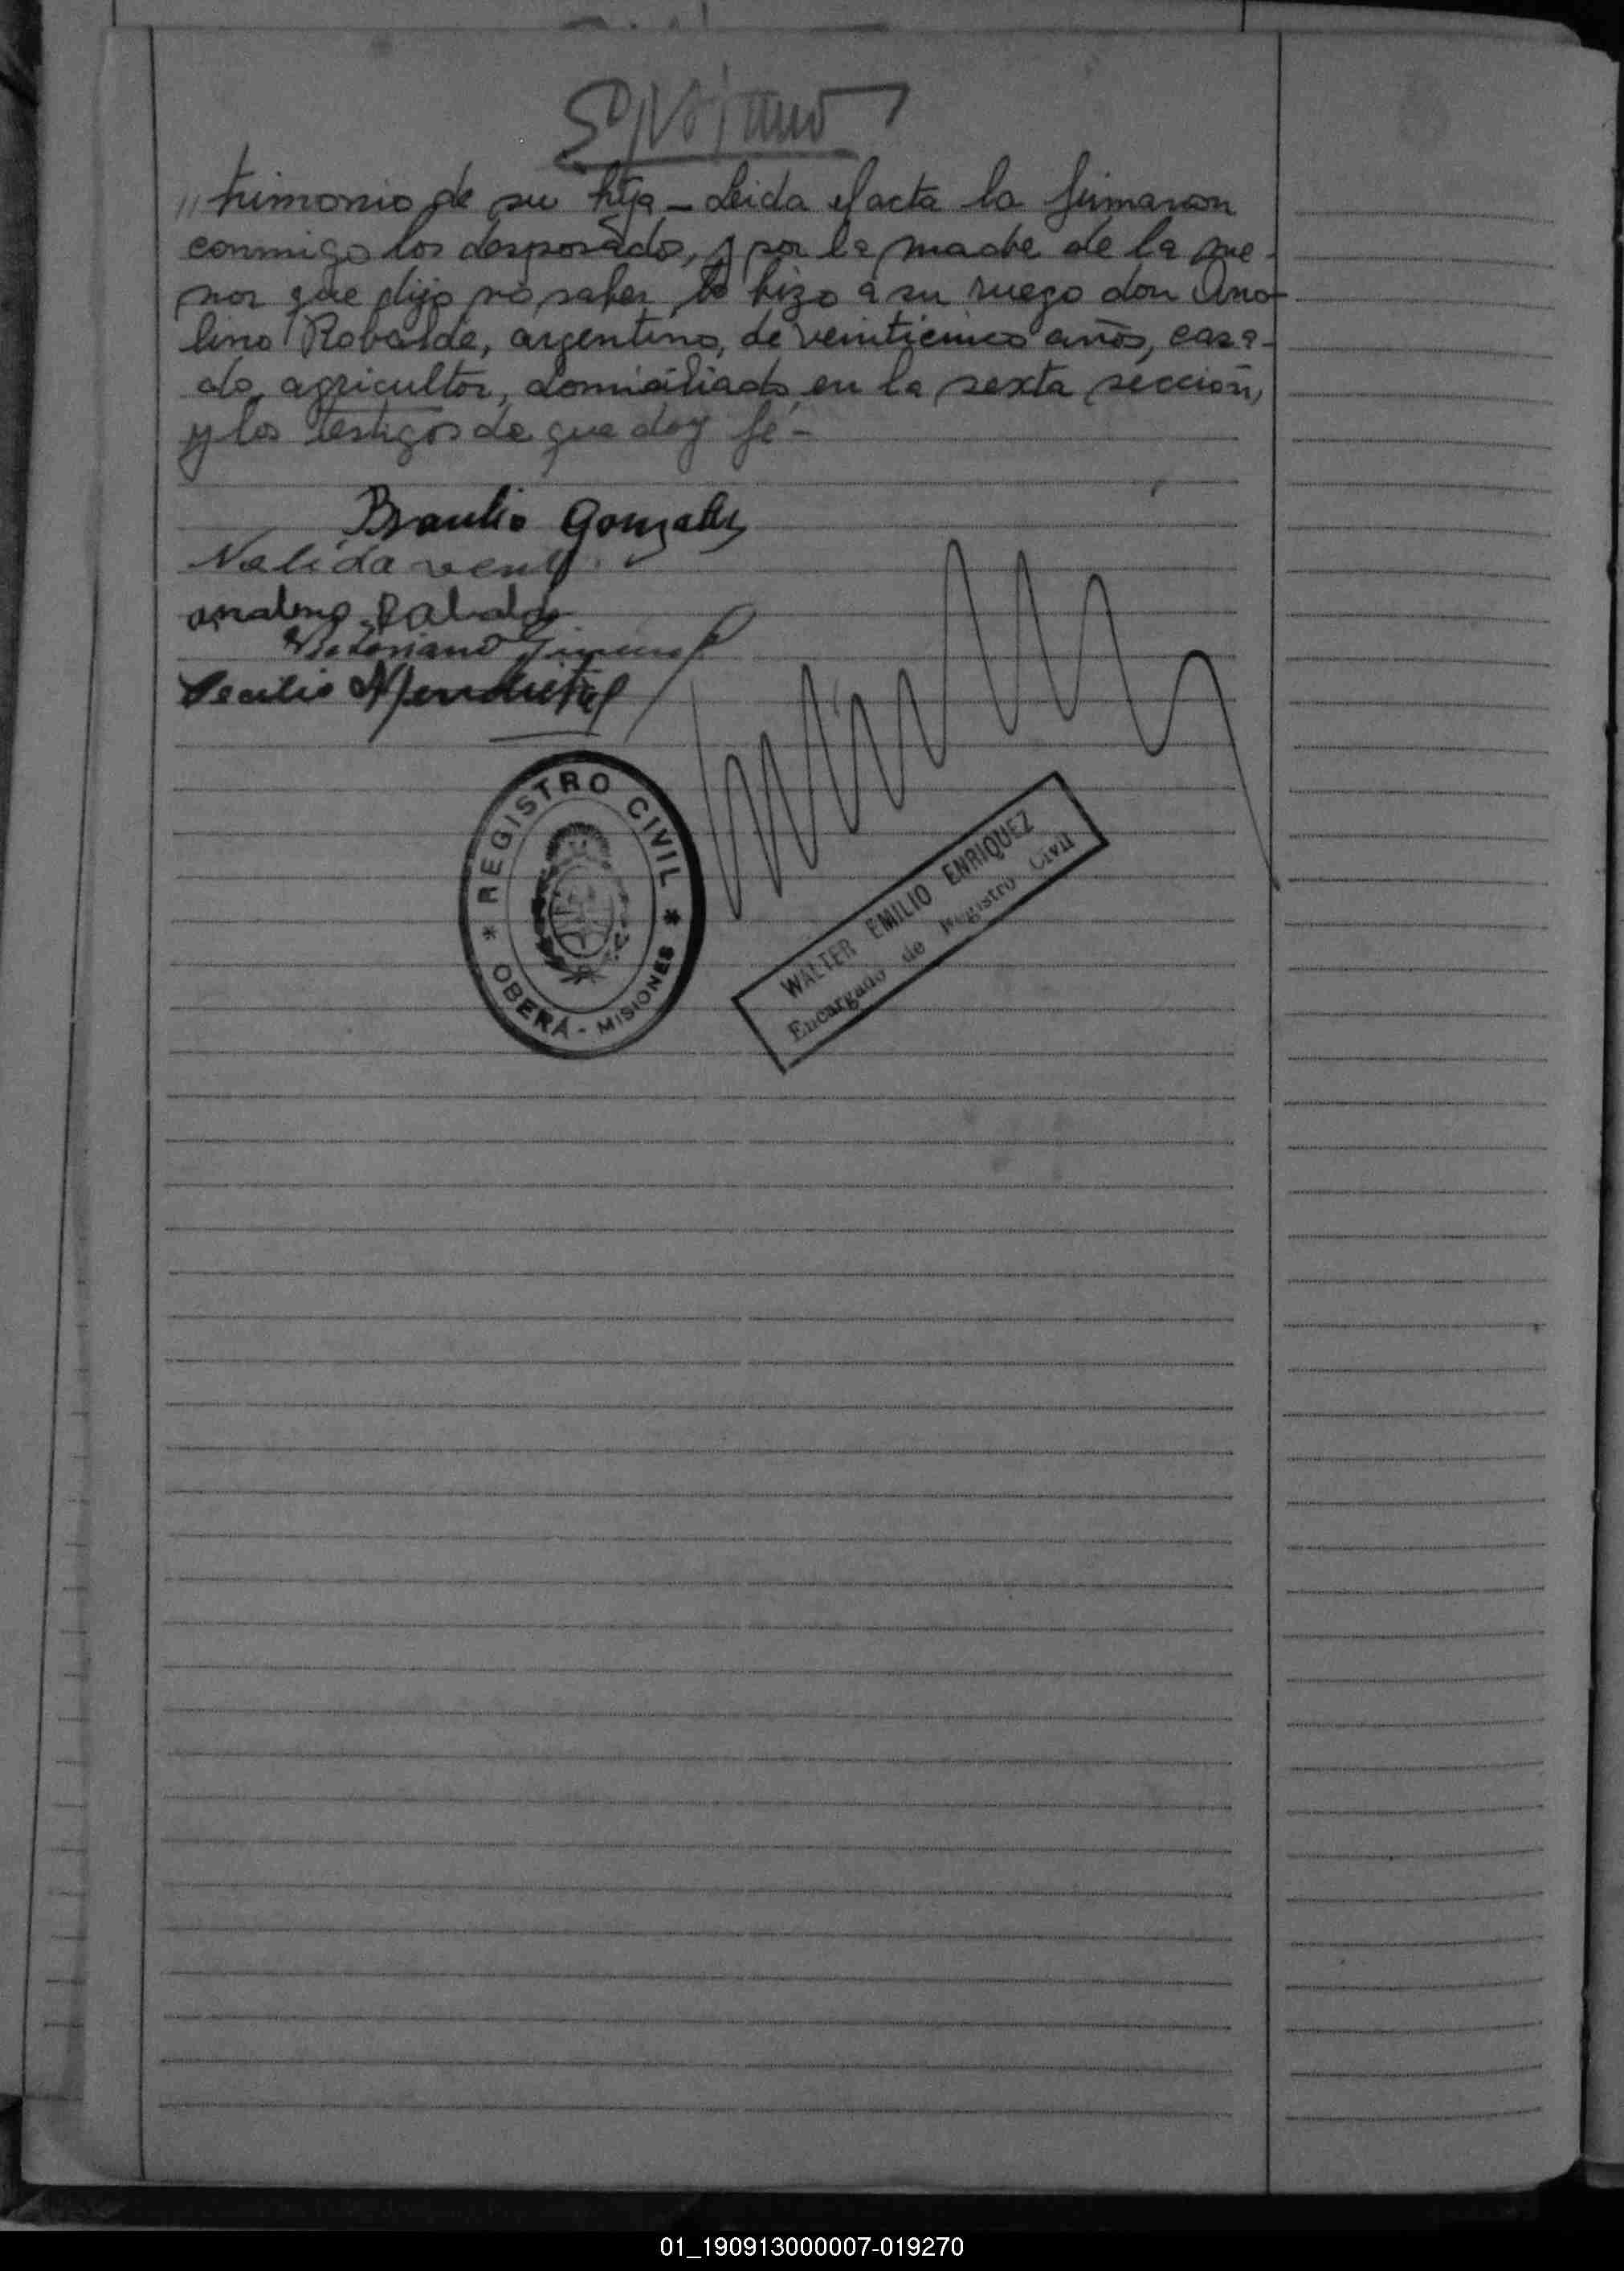 "trimonio de su hija — Leida el acta la firmaron
conmigo los desposados, y por la madre de la me-
nor que dijo no saber, lo hizo a su ruego don Ana-
lino Robalde, argentino, de veinticinco años, casa-
do, agricultor, domiciliado en la sexta sección,
y los testigos de que doy fé —
Braulio Gonzalez
Nelida
REGISTRO CIVIL
OBERÁ - MISIONES
WALTER EMILIO ENRIQUEZ
Encargado de Registro Civil
01_190913000007-019270